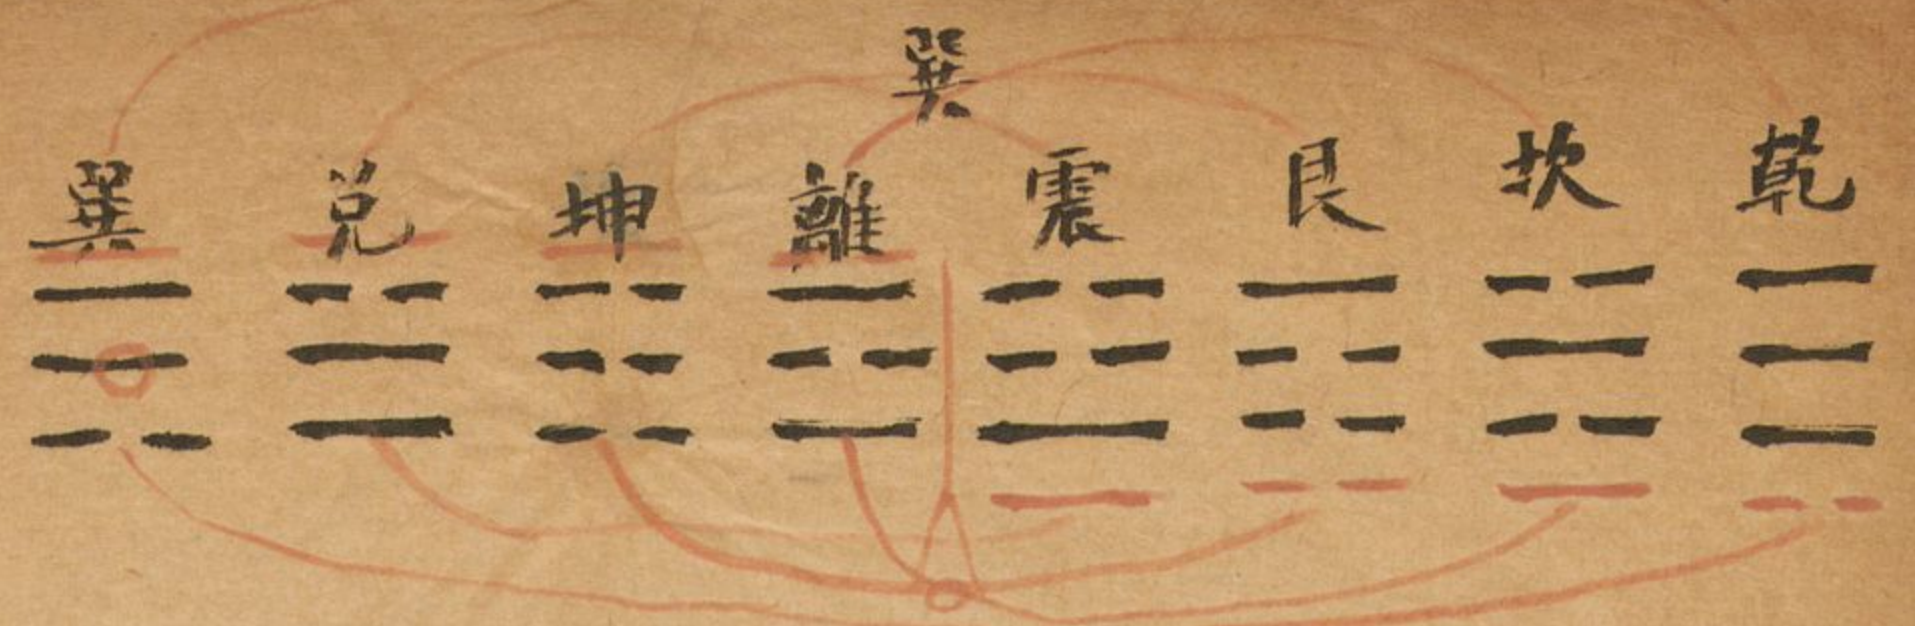 巽
乾 坎 艮 震 離 坤 兌 巽